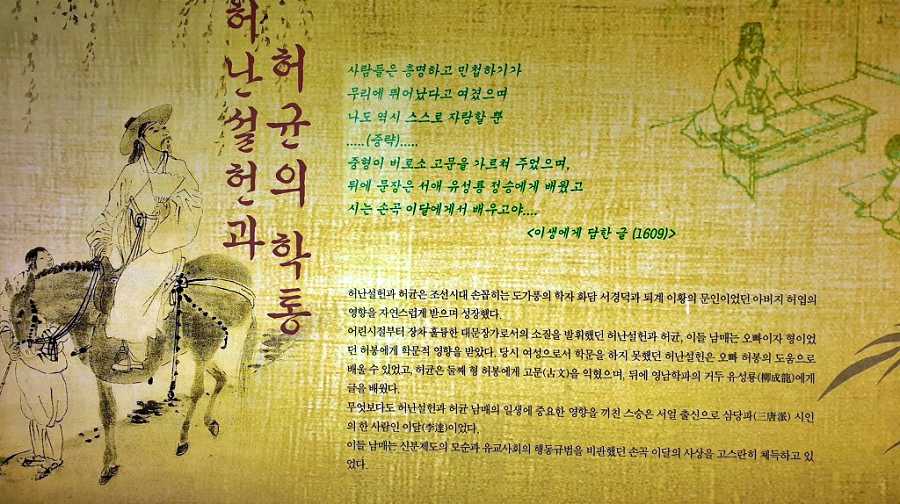 허난설헌과
허균의 학통
사람들은 총명하고 민첩하기가
무리에 뛰어났다고 여겼으며
나도 역시 스스로 자랑할 뿐
.....(중략).....
중형이 비로소 고문을 가르쳐 주었으며,
뒤에 문장은 서애 유성룡 정승에게 배웠고
시는 손곡 이달에게서 배우고야....
<이생에게 답한 글 (1609)>
허난설헌과 허균은 조선시대 손꼽히는 도가풍의 학자 화담 서경덕과 퇴계 이황의 문인이었던 아버지 허엽의
영향을 자연스럽게 받으며 성장했다.
어린시절부터 장차 훌륭한 대문장가로서의 소질을 발휘했던 허난설헌과 허균, 이들 남매는 오빠이자 형이었
던 허봉에게 학문적 영향을 받았다. 당시 여성으로서 학문을 하지 못했던 허난설헌은 오빠 허봉의 도움으로
배울 수 있었고, 허균은 둘째 형 허봉에게 고문(古文)을 익혔으며, 뒤에 영남학파의 거두 유성룡(柳成龍)에게
글을 배웠다.
무엇보다도 허난설헌과 허균 남매의 일생에 중요한 영향을 끼친 스승은 서얼 출신으로 삼당파(三唐派) 시인
의 한 사람인 이달(李達)이었다.
이들 남매는 신분제도의 모순과 유교사회의 행동규범을 비판했던 손곡 이달의 사상을 고스란히 체득하고 있
었다.